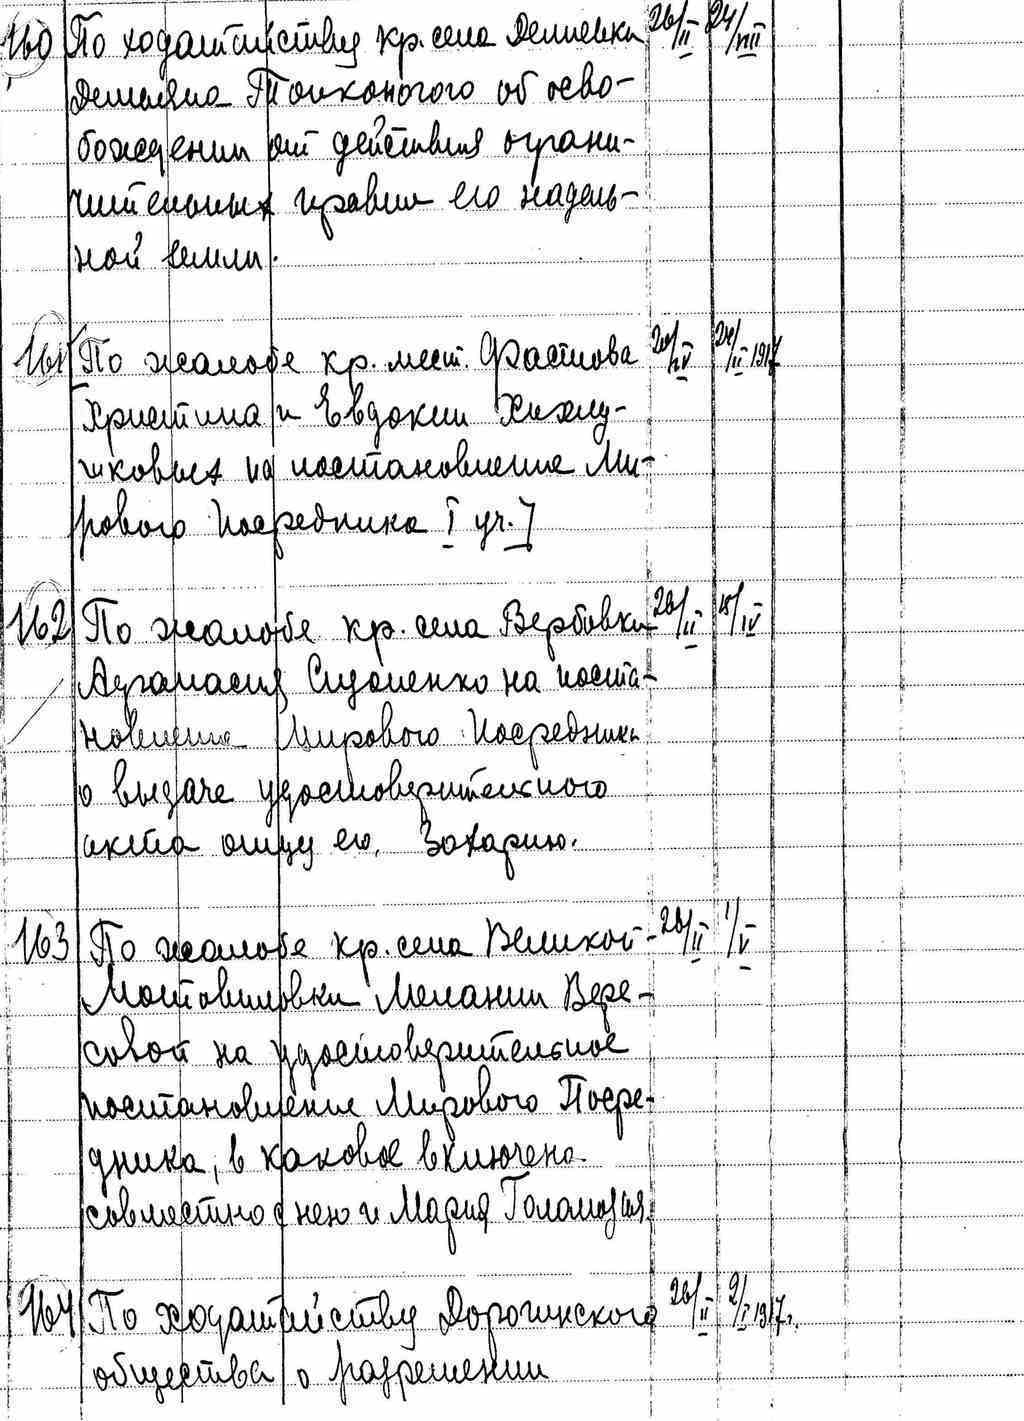 160 По ходатайству кр. села Демиевки 26/II 24/VIII
Демьяна Тонконогого об осво-
бождении от действия ограни-
чительных правил его надель-
ной земли.
161 По жалобе кр. мест. Фастова 1917
Христина и Евдокии
на постановление Ми-
рового Посредника I уч.
162 По жалобе кр. села Вербовки 26/II 15/IV
Афанасия Сидоленко на поста-
новление Мирового Посредника
о выдаче удостоверительного
акта отцу его, Захарию.
163 По жалобе кр. села Великой- 26/II 1/V
Мотовиловки Мелании Вере-
совой на удостоверительное
постановление Мирового Посре-
дника, в каковое включена
совместно с нею и Мария Голомозая.
164 По ходатайству Дорогинского 26/II 2/I 1917г.
общества о разрешении